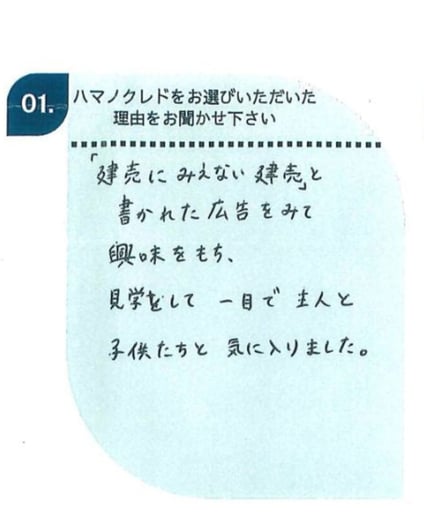 01.
ハマノクレドをお選びいただいた
理由をお聞かせ下さい
「建売にみえない建売」と
書かれた広告をみて
興味をもち、
見学をして 一目で 主人と
子供たちと 気に入りました。